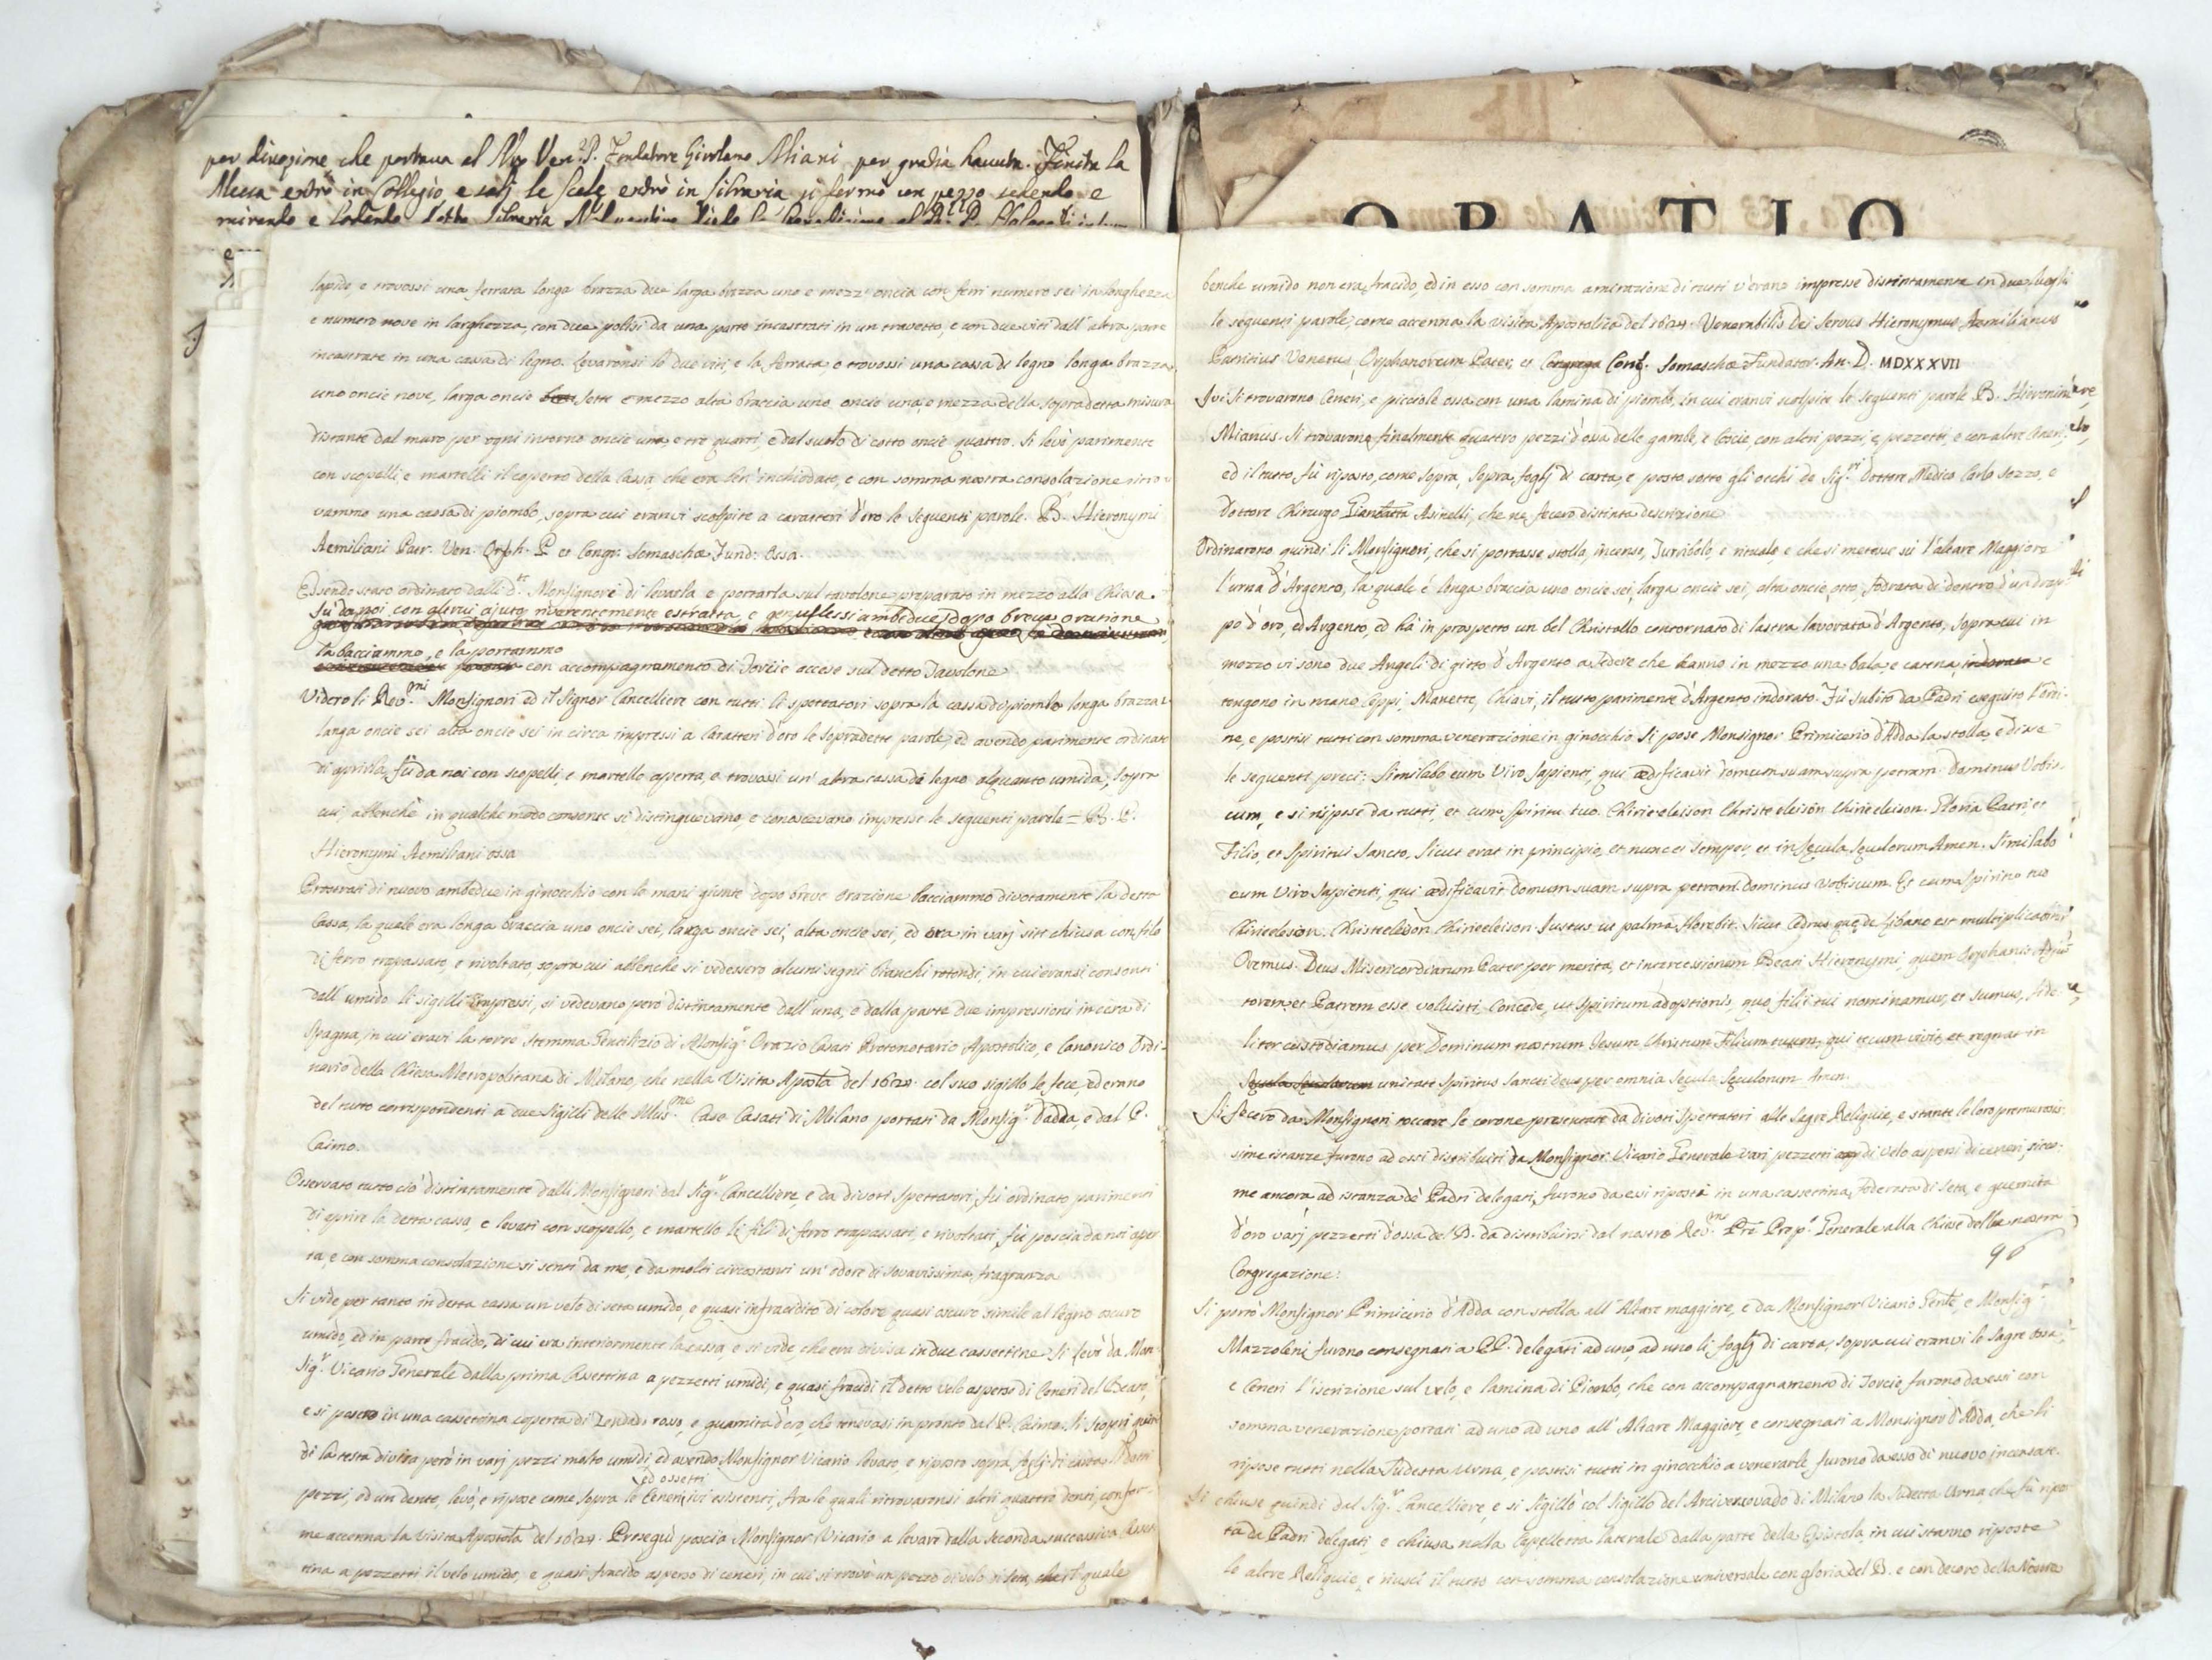 per divozione che portava al Nro Ven. P. Fondatore Girolamo Miani per gradia havuta. Finita la
Messa entrò in Collegio e salì le scale entrò in libraria si fermò un pezzo sedendo e
mirando e lodando detta libraria
O R A T I O
lapide, e trovossi una ferrata longa brazza due larga brazza uno e mezz' oncia con ferri numero sei in longhezza
e numero nove in larghezza, con due polisi da una parte incastrati in un travetto, e con due viti dall' altra parte
incastrate in una cassa di legno. Levaronsi le due viti, e la ferrata, e trovossi una cassa di legno longa brazza
uno oncie nove, larga oncie sette e mezzo alta braccia uno oncie una, e mezza della sopradetta misura
distante dal muro per ogni intorno oncie una, e tre quarti, e dal suolo di cotto oncie quattro. Si levò parimente
con scopelli, e martelli il coperto della Cassa, che era ben' inchiodato, e con somma nostra consolazione ritro-
vammo una cassa di piombo, sopra cui eranvi scolpite a caratteri d'oro le seguenti parole. B. Hieronymi
Aemiliani Patr. Ven. Orph. P. et Congr. Somaschæ Fund. Ossa.
Essendo stato ordinato dalli d.ti Monsignori di levarla e portarla sul tavolone preparato in mezzo alla Chiesa.
Fù da noi con altrui ajuto riverentemente estratta, e genuflessi ambedue, dopo breve oratione
la bacciammo, e la portammo
con accompagnamento di Torcie accese sul detto Tavolone
Videro li Rev.mi Monsignori ed il Signor Cancelliere con tutti li spettatori sopra la cassa di piombo longa brazza 1.
larga oncie sei alta oncie sei in circa impressi a Caratteri d'oro le sopradette parole, ed avendo parimente ordinato
di aprirla, fù da noi con scopelli, e martello aperta, e trovossi un' altra cassa di legno alquanto umida, sopra
cui, abbenchè in qualche modo consonte si distinguevano, e conoscevano impresse le seguenti parole = B. P.
Hieronymi Aemiliani ossa
Prostrati di nuovo ambedue in ginocchio con le mani giunte dopo breve orazione bacciammo divotamente la detta
Cassa, la quale era longa braccia uno oncie sei, larga oncie sei, alta oncie sei, ed era in varj siti chiusa con filo
di ferro trapassato, e rivoltato, sopra cui abbenche si vedessero alcuni segni bianchi rotondi, in cui eransi consonti
dall' umido li sigilli impressi, si vedevano però distintamente dall' una, e dalla parte due impressioni in cera di
Spagna, in cui eravi la torre stemma Gentilizio di Monsig.r Orazio Casati Protonotario Apostolico, e Canonico Ordi-
nario della Chiesa Metropolitana di Milano, che nella Visita Aposta del 1624. col suo sigillo le fece, ed erano
del tutto corrispondenti a due Sigilli delle Illus.me Case Casati di Milano portati da Monsig.r Dadda, e dal P.
Caimo.
Osservato tutto ciò distintamente dalli Monsignori dal Sig.r Cancelliere, e da divoti spettatori, fù ordinato parimenti
di aprire la detta cassa, e levati con scopello, e martello li fili di ferro trapassati, e rivoltati, fù poscia da noi aper
ta, e con somma consolazione si sentì da me, e da molti circostanti un' odore di soavissima fragranza
Si vide per tanto in detta cassa un velo di seta umido, e quasi infracidito di colore quasi oscuro simile al legno oscuro
umido, ed in parte fracido, di cui era interiormente la cassa, e si vide, che era divisa in due cassettine. Si levò da Mon-
Sig.r Vicario Generale dalla prima Cassettina a pezzetti umidi, e quasi fracidi il detto velo asperso di Ceneri del Beato,
e si posero in una cassettina coperta di Zendado rosso, e guarnita d'oro, che tenevasi in pronto dal P. Caimo. Si scoprì quin
di la testa divisa però in varj pezzi molto umidi, ed avendo Monsignor Vicario levato, e riposto sopra foglj di carta
ed ossetti
pezzi, ed un dente, levò, e ripose come sopra le Ceneri ivi esistenti, fra le quali ritrovaronsi altri quattro denti, confor-
me accenna la visita Apostola del 1624. Proseguì poscia Monsignor Vicario a levare dalla seconda successiva Casset
tina a pezzetti il velo umido, e quasi fracido asperso di ceneri, in cui si trovò un pezzo di velo di seta, il quale
benche umido non era fracido, ed in esso con somma amirazione di tutti v'erano impresse distintamente in due luoghi
le seguenti parole, come accenna la visita Apostolica del 1624. Venerabilis Dei Servus Hieronymus Aemilianus
Patritius Venetus, Orphanorum Pater, et Cong. Somaschæ Fundator. An. D. MDXXXVII
Ivi si trovarono Ceneri, e picciole ossa con una lamina di piombo, in cui eranvi scolpite le seguenti parole B. Hieronimus
Mianus. Si trovarono finalmente quattro pezzi d'ossa delle gambe, e Coscie, con altri pezzi, e pezzetti, e con altre Ceneri,
ed il tutto fù riposto, come sopra, sopra foglj di carta, e posto sotto gli occhi de Sig.ri Dottore Medico Carlo Sozzo, e
Dottore Chirurgo Asinelli, che ne fecero distinta descrizione
Ordinarono quindi li Monsignori, che si portasse stolla, incenso, Turribolo, e rituale, e che si metesse sù l'altare Maggiore
l'urna d'Argento, la quale è longa braccia uno oncie sei, larga oncie sei, alta oncie otto, fodrata di dentro d'un drap
po d'oro, ed Argento, ed hà in prospetto un bel Christallo contornato di lastra lavorata d'Argento, sopra cui in
mezzo vi sono due Angeli di gitto d'Argento a sedere che hanno in mezzo una bala, e catena, indorata e
tengono in mano Ceppi, Manette, Chiavi, il tutto parimente d'Argento indorato. Fù subito da Padri eseguito l'ordi-
ne, e postisi tutti con somma venerazione in ginocchio si pose Monsignor Primicerio d'Adda la stolla, e disse
le seguenti preci: Similabo eum Viro sapienti, qui ædificavit domum suam supra petram. Dominus Vobis-
cum, e si rispose da tutti, et cum Spiritu tuo. Chirie eleison Christe eleison Chirie eleison. Gloria Patri, et
Filio, et Spiritui Sancto, Sicut erat in principio, et nunc et semper, et in Sęcula Sęculorum Amen. Similabo
eum Viro Sapienti, qui ædificavit Domum suam supra petram. Dominus vobiscum. Et cum Spiritu tuo
Chirieeleison. Christeeleison Chirieeleison. Justus ut palma florebit. Sicut Cedrus quę de Libano est multiplicabitur
Oremus. Deus Misericordiarum Pater per merita, et intercessionem Beati Hieronymi, quem Orphanis Adju-
torem, et Patrem esse voluisti, Concede, ut Spiritum adoptionis, quo filii tui nominamur, et sumus, fide-
liter custodiamus per Dominum nostrum Jesum Christum Filium tuum, qui tecum vivit, et regnat in
unitate Spiritus Sancti deus per omnia Sęcula Sęculorum Amen.
Si fecero da Monsignori toccare le corone presentate da divoti Spettatori alle Sagre Reliquie, e stante le loro premurosis-
sime istanze furono ad essi distribuiti da Monsignor Vicario Generale varj pezzetti di velo aspersi di ceneri, sicco-
me ancora ad istanza de Padri delegati, furono da essi riposti in una cassettina, foderata di seta, e guernita
d'oro varj pezzetti d'ossa del B. da distribuirsi dal nostro Rev.mo Pre Prep.o Generale alla Chiese della nostra
96
Congregazione.
Si portò Monsignor Primicerio d'Adda con stolla all' Altare maggiore, e da Monsignor Vicario Gente, e Monsig.r
Mazzoleni furono consegnati a PP. delegati ad uno, ad uno li foglj di carta, sopra cui eranvi le Sagre Ossa,
e Ceneri l'iscrizione sul velo, e lamina di Piombo, che con accompagnamento di Torcie furono da essi con
somma venerazione portati ad uno ad uno all' Altare Maggiore, e consegnati a Monsignor d'Adda, che li
ripose tutti nella sudetta Urna, e postisi tutti in ginocchio a venerarle furono da esso di nuovo incensate.
Si chiuse quindi dal Sig.r Cancelliere, e si sigillò col Sigillo del Arcivescovado di Milano la sudetta Urna, che fù ripo
ta da Padri delegati, e chiusa nella Capelletta laterale dalla parte della Epistola, in cui stanno riposte
le altre Reliquie, e riuscì il tutto con somma consolazione universale con gloria del B. e con decoro della Nostra